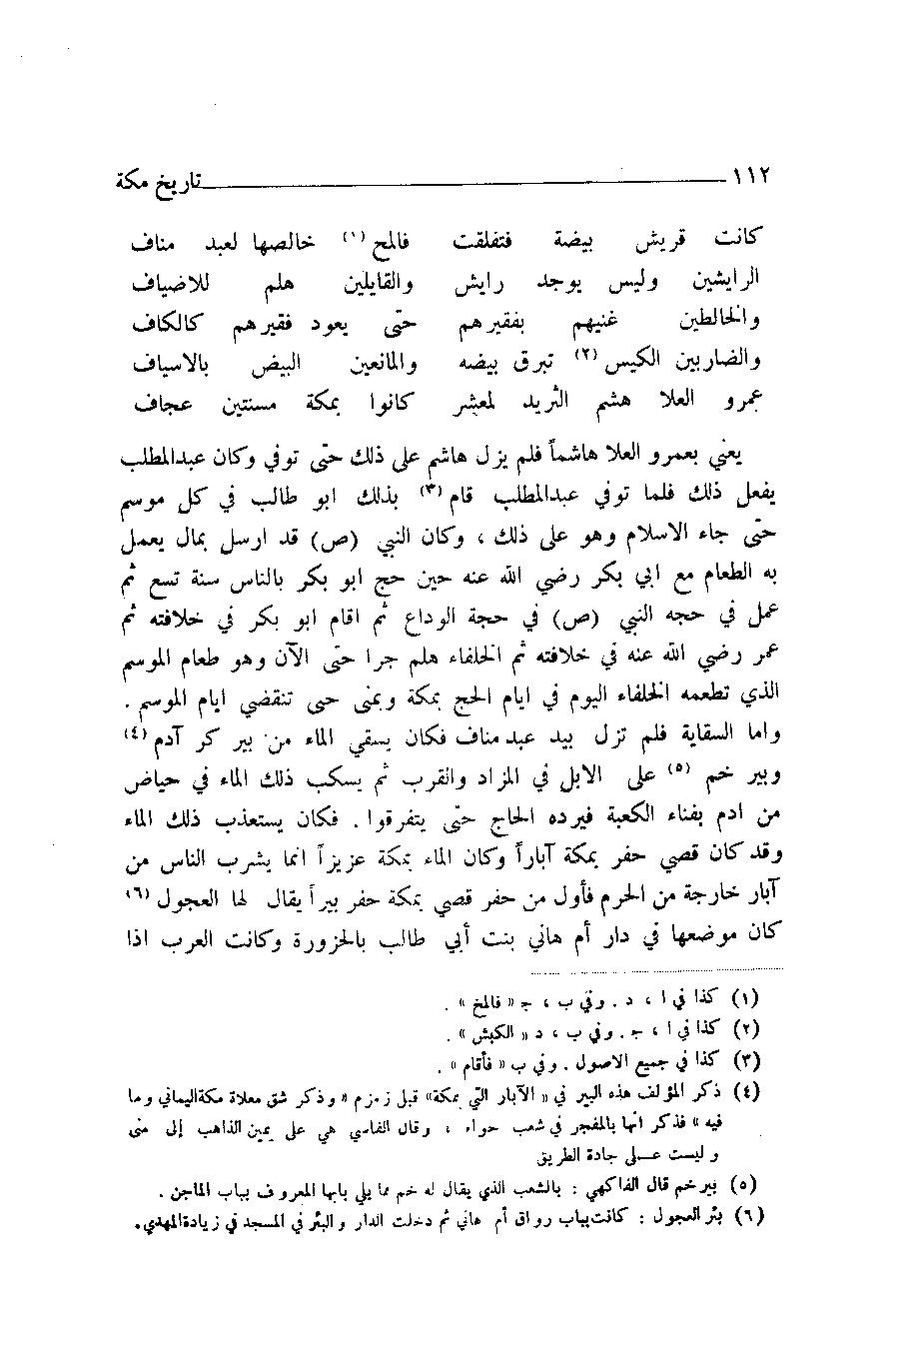 ١١٢ تاريخ مكة
كانت قريش بيضة فتفلقت فالمح (١) خالصها لعبد مناف
الرايشين وليس يوجد رايش والقايلين هلم للاضياف
والخالطين غنيهم بفقيرهم حتى يعود فقيرهم كالكاف
والضاربين الكيس (٢) تبرق بيضه والمانعين البيض بالاسياف
عمرو العلا هشم الثريد لمعشر كانوا بمكة مسنتين عجاف
يعني بعمرو العلا هاشماً فلم يزل هاشم على ذلك حتى توفي وكان عبدالمطلب
يفعل ذلك فلما توفي عبدالمطلب قام (٣) بذلك ابو طالب في كل موسم
حتى جاء الاسلام وهو على ذلك ، وكان النبي (ص) قد ارسل بمال يعمل
به الطعام مع ابي بكر رضي الله عنه حين حج ابو بكر بالناس سنة تسع ثم
عمل في حجه النبي (ص) في حجة الوداع ثم اقام ابو بكر في خلافته ثم
عمر رضي الله عنه في خلافته ثم الخلفاء هلم جرا حتى الآن وهو طعام الموسم
الذي تطعمه الخلفاء اليوم في ايام الحج بمكة وبمنى حتى تنقضي ايام الموسم .
واما السقاية فلم تزل بيد عبد مناف فكان يسقي الماء من بير كر آدم (٤)
وبير خم (٥) على الابل في المزاد والقرب ثم يسكب ذلك الماء في حياض
من ادم بفناء الكعبة فيرده الحاج حتى يتفرقوا . فكان يستعذب ذلك الماء
وقد كان قصي حفر بمكة آباراً وكان الماء بمكة عزيزاً انما يشرب الناس من
آبار خارجة من الحرم فأول من حفر قصي بمكة حفر بيراً يقال لها العجول (٦)
كان موضعها في دار أم هاني بنت أبي طالب بالحزورة وكانت العرب اذا
(١) كذا في ا ، د . وفي ب ، ج « فالمخ » .
(٢) كذا في ا ، ج . وفي ب ، د « الكبش » .
(٣) كذا في جميع الاصول . وفي ب « فأقام » .
(٤) ذكر المؤلف هذه البير في « الآبار التي بمكة» قبل زمزم « وذكر شق معلاة مكة اليماني وما
فيه » فذكر انها بالمفجر في شعب حواء ، وقال الفاسي هي على يمين الذاهب إلى منى
وليست عـلى جادة الطريق
(٥) بير خم قال الفاكهي : بالشعب الذي يقال له خم مما يلي بابها المعروف بباب الماجن .
(٦) بئر العجول : كانت بباب رواق أم هاني ثم دخلت الدار والبئر في المسجد في زيادة المهدي.